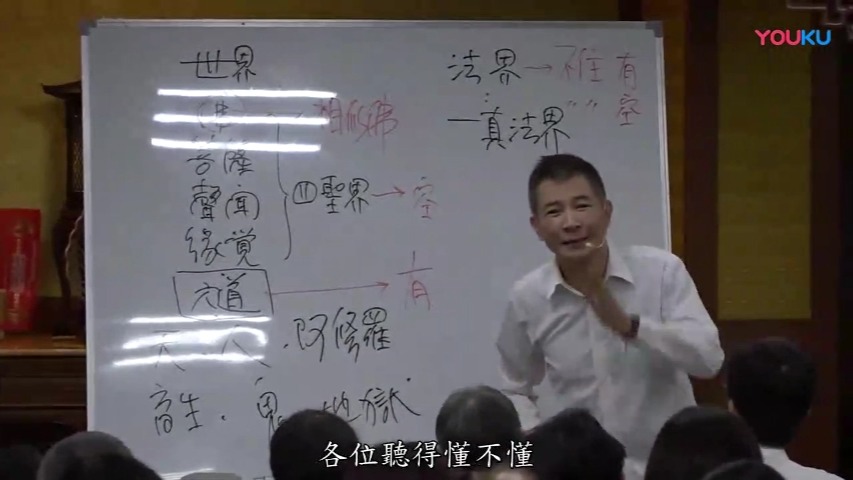 YOUKU
世界
法界→不住有
(佛) 相似佛
〃〃空
一真法界
菩薩
聲聞
四聖界→空
緣覺
六道→有
天.人.阿修羅
畜生.鬼.地獄
各位聽得懂不懂